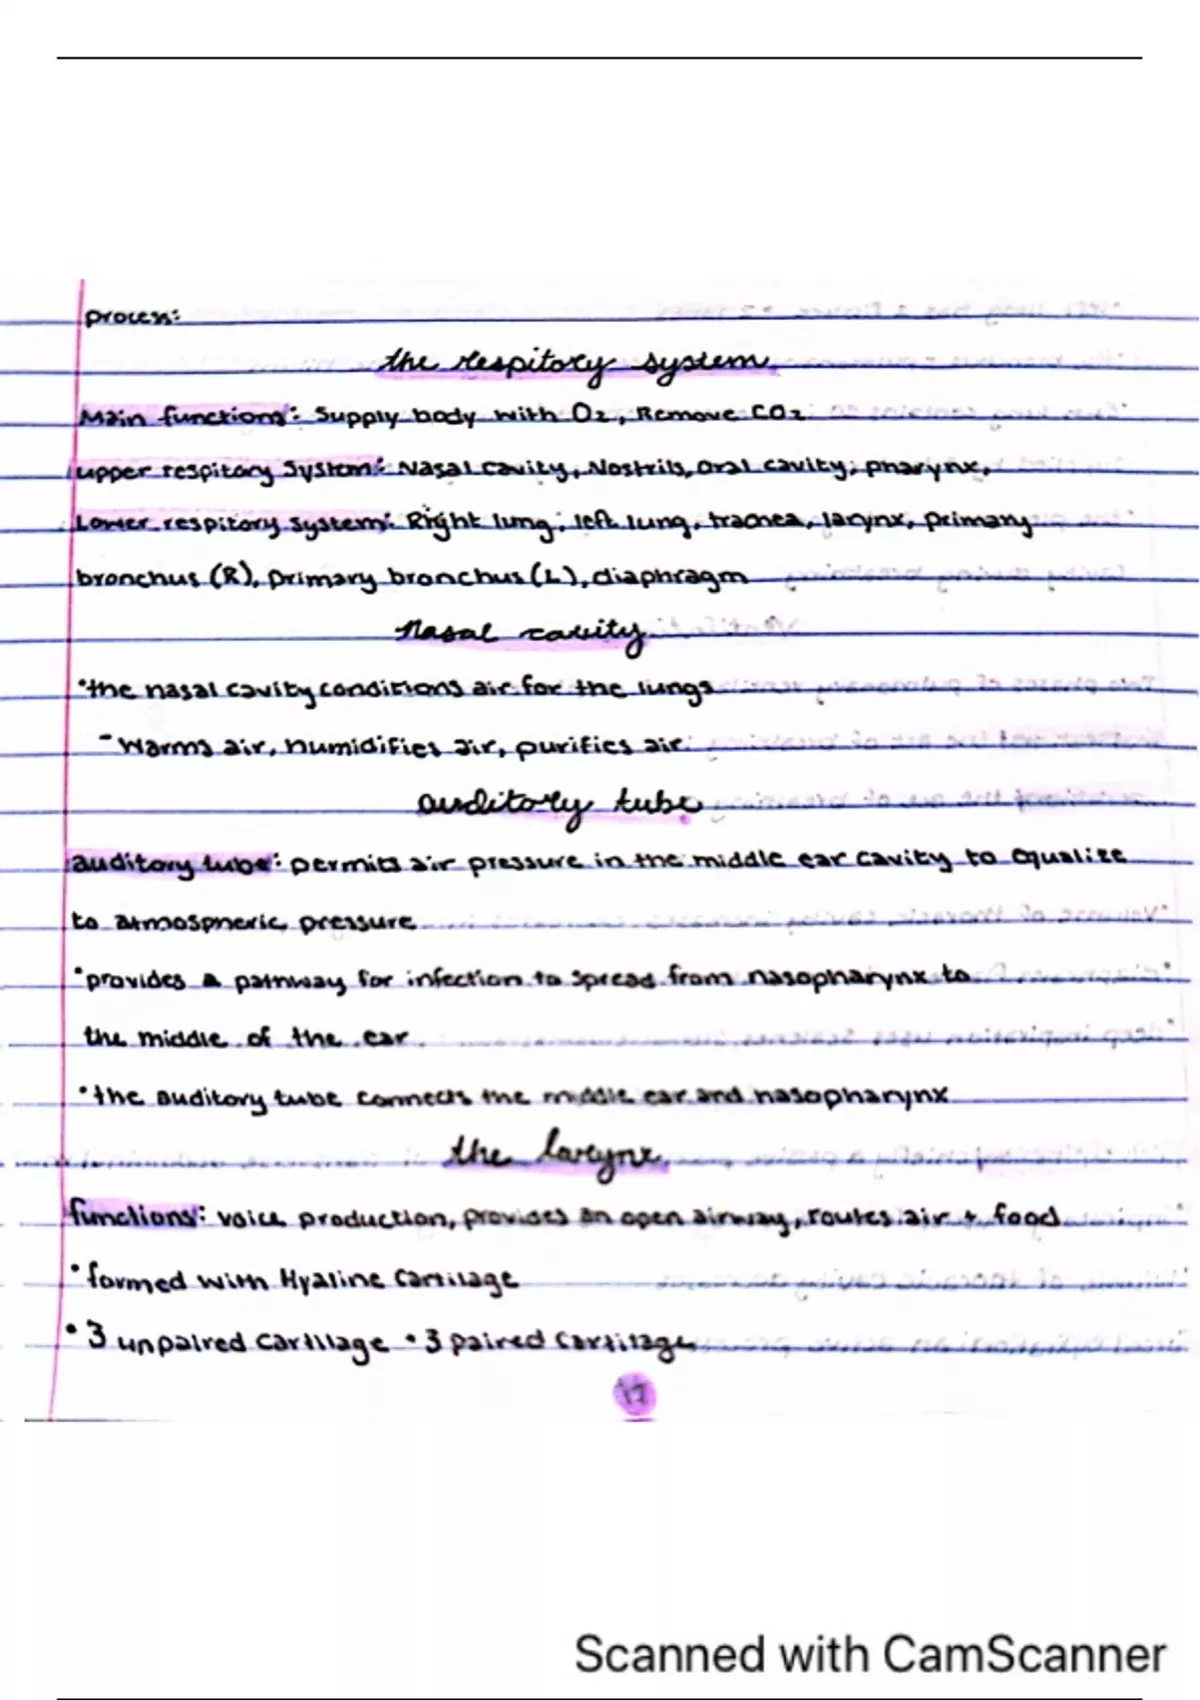 process:
the respitory system
Main functions: Supply body with O2, Remove CO2
upper respitory System: Nasal cavity, Nostrils, oral cavity, pharynx,
Lower respitory system: Right lung, left lung, trachea, larynx, primary
bronchus (R), primary bronchus (L), diaphragm
Nasal cavity
•the nasal cavity conditions air for the lungs
- warms air, humidifies air, purifies air
auditory tube
auditory tube: permits air pressure in the middle ear cavity to equalize
to atmospheric pressure
•provides a pathway for infection to spread from nasopharynx to
the middle of the ear
•the auditory tube connects the middle ear and nasopharynx
the larynx
functions: voice production, provides an open airway, routes air + food
•formed with Hyaline Cartilage
•3 unpaired cartilage •3 paired cartilage
17
Scanned with CamScanner